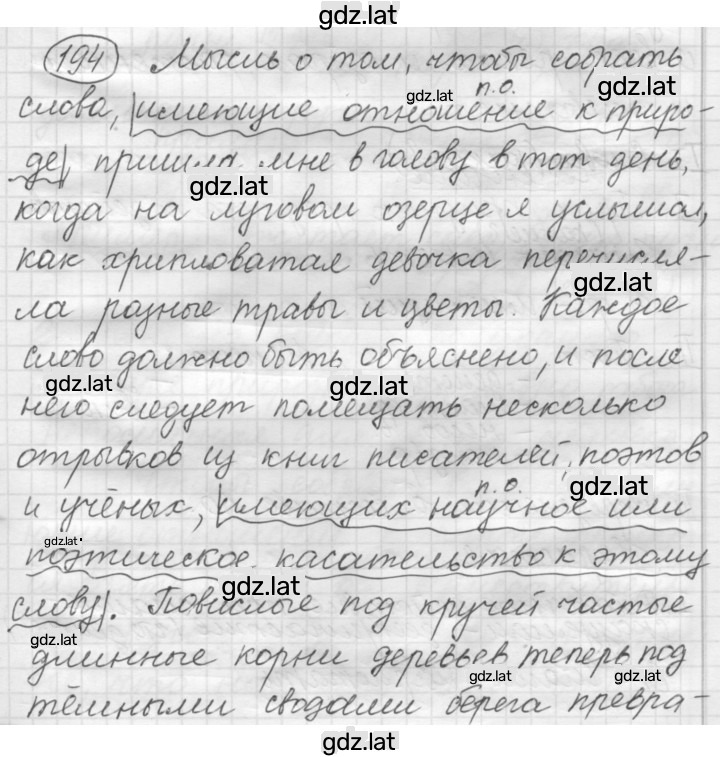 gdz.lat
194 Мысль о том, чтобы собрать
gdz.lat
gdz.lat п.о.
слова, имеющие отношение к приро-
де, пришла мне в голову в тот день,
gdz.lat
когда на луговом озерце я услышал,
как хрипловатая девочка перечисля-
gdz.lat
ла разные травы и цветы. Каждое
слово должно быть объяснено, и после
gdz.lat gdz.lat
него следует помещать несколько
отрывков из книг писателей, поэтов
п.о. gdz.lat
и учёных, имеющих научное или
gdz.lat
поэтическое касательство к этому
gdz.lat
слову. Повислые под кручей частые
gdz.lat
длинные корни деревьев теперь под
gdz.lat gdz.lat
тёмными сводами берега превра-
gdz.lat